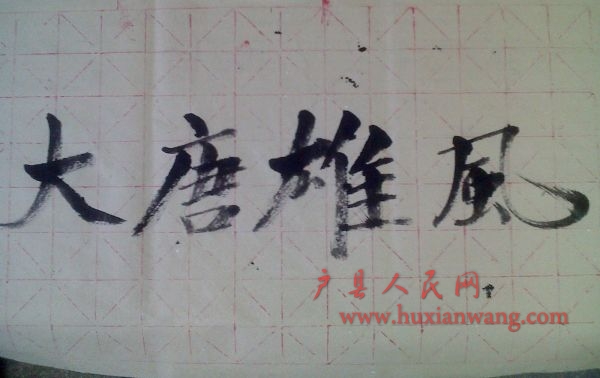 大唐雄風
户县人民网
www.huxianwang.com